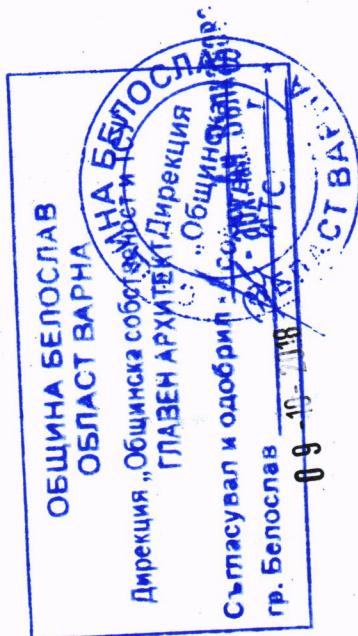 ОБЩИНА БЕЛОСЛАВ
ОБЛАСТ ВАРНА
Дирекция „Общинска собственост и ТС"
ГЛАВЕН АРХИТЕКТ
Съгласувал и одобрил
гр. Белослав
09 -10- 2018
ОБЩИНА БЕЛОСЛАВ
ОБЛАСТ ВАРНА
Дирекция
„Общинска
и ТС